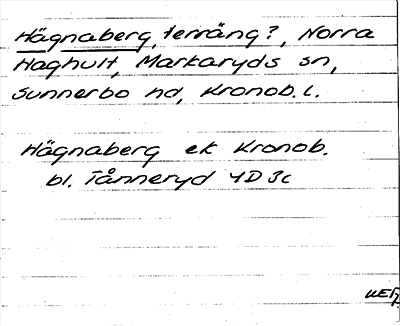 Hägnaberg, terräng?, Norra
Haghult, Markaryds sn,
Sunnerbo hd, Kronob. l.
Hägnaberg ek Kronob.
bl. Tånneryd 4D 3c